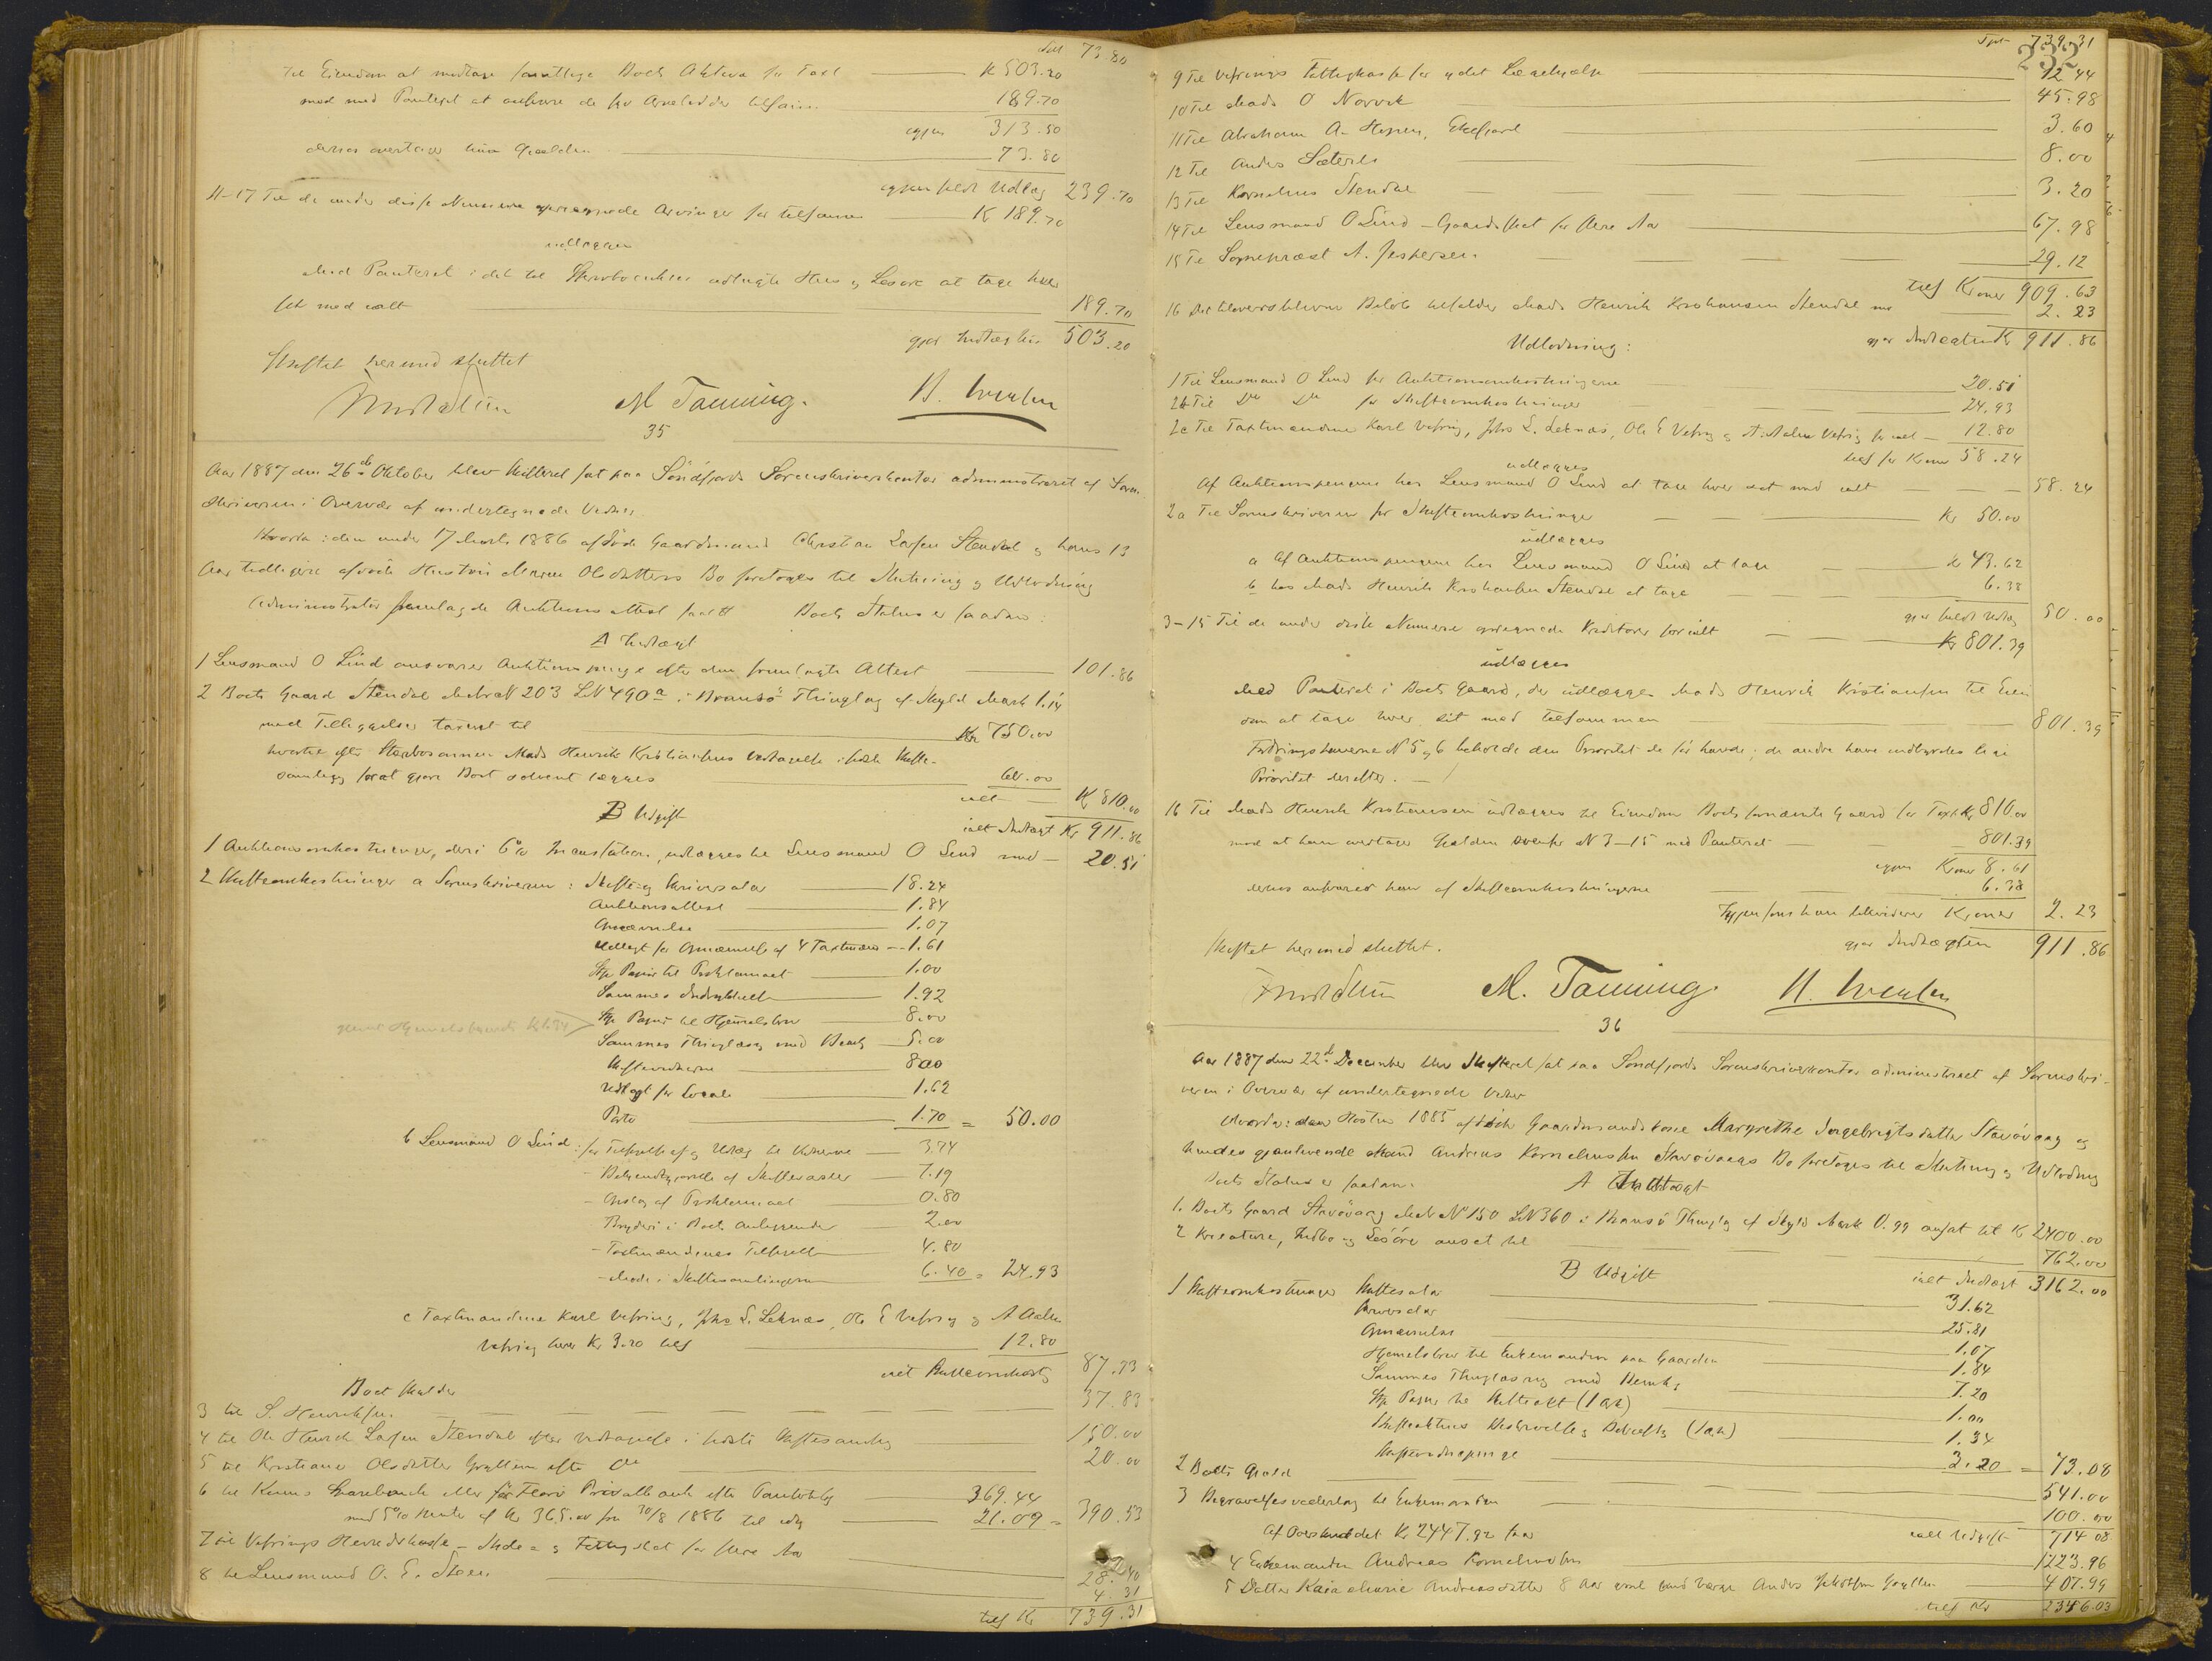 73.80
Til Eiendom at modtage samtlige Boets Aktiva for Taxt K 503.20
mod med Panteret at ansvare de tilsam. 189.70
igjen 313.50
overtager Gjælden 73.80
igjen Udlæg 239.70
11-17 Til de under disse Numere opregnede Arvinger for tilsammen K 189.70
udlægges
Med Panteret i det til udlagte Hus og Løsøre at tage hver
sit med ialt 189.70
gjør Indtægten 503.20
Skiftet hermed sluttet
M Tanning.
35
Aar 1887 den 26de Oktober blev Skifteret sat paa Söndfjords Sorenskriverkontor administreret af Soren-
skriveren i Overvær af undertegnede Vidner.
Hvorda: den under 17 Marts 1886 afdöde Gaardmand Christian Larsen Stendal og hans 13
Aar tidligere afdöde Hustru Maren Olsdatters Bo foretoges til Slutning og Udlodning
Administrator fremlagde Auktionsattest Boets Status er saadan:
A Indtægt
1 Lensmand O Lind ansvarer Auktionspenge efter den fremlagte Attest 101.86
2 Boets Gaard Stendal MatrN 203 LN 490a i Thinglag af Skyld Mark 1.14
med Tilliggelser taxeret til Kr 750.00
hvortil efter Mads Henrik Kristiansens vedtagelse i sidste Skifte-
samling forat gjøre Boet solvent lægges 60.00
ialt K 810.00
ialt Indtægt Kr 911.86
B Udgift
1 Auktionsomkostninger, deri 6% udlægges til Lensmand O Lind med 20.51
2 Skifteomkostninger a Sorenskriveren: Skifte og Skriversalær 18.24
Auktionsattest 1.84
Opnævnelse 1.07
Udlagt for Opnævnelse af 4 Taxtmænd 1.61
Stp Papir til Proklamaet 1.00
Sammes Indrykkelse 1.92
Stp Papir til Hjemmelsbrev 8.00
Sammes Thinglæsn med Bem 5.00
Skiftevidnerne 8.00
Udlagt for Locale 1.62
Porto 1.70 = 50.00
b Lensmand O Lind: for Tilsigelse af og Udlæg til Vidnerne 3.74
- af Skiftevarsler 7.19
- Opslag af Proklamaet 0.80
Bryderi i Boets Anliggender 2.00
- Taxtmændenes Tilsigelse 4.80
- Møde i Skiftesamlingerne 6.40 = 24.93
c Taxtmændene Karl Vefring, Johs S. Leknæs, Ole E Vefring og A Aalen
Vefring hver Kr 3.20 tils 12.80
ialt Skifteomkostn 87.73
Boet skylder
3 til S. Henriksen 37.83
4 til Ole Henrik Larsen Stendal efter Vedtagelse i sidste Skiftesamling 150.00
5 til Kristiane Olsdatter efter do 20.00
6 til Kinns Sparebank eller før Florø Privatbank efter Panteobl 369.44
med 5% Rente af Kr 365.00 fra 30/8 1886 til idag 21.09 = 390.53
7 til Vefrings Herredskasse - og Fattigskat for flere Aar 28.40
8 til Lensmand O. E. Steen 4.31
tils Kr 739.31
232
Tpt 739.31
9 Til Vefrings Fattigkasse for ydet Lægehjælp 12.44
10 Til Mads O Norvik 45.98
11 Til Abraham A. Hopen, Eikefjord 3.60
12 Til Anders Sæterli 8.00
13 Til Kornelius Stendal 3.20
14 Til Lensmand O Lind - Gaardskat for flere Aar 67.98
15 Til Sogneprest A. Jespersen 29.12
tils Kroner 909.63
16 Det tiloversblevne Beløb tilfalder Mads Henrik Kristiansen Stendal med 2.23
gjør Indtægten Kr 911.86
Udlodning:
1 Til Lensmand O Lind for Auktionsomkostningerne 20.51
2b Til Do Do for Skifteomkostninger 24.93
2c Til Taxtmændene Karl Vefring, Johs S. Leknæs, Ole E Vefring og A Aalen Vefring for ialt 12.80
tils for Kroner 58.24
udlægges
Af Auktionspengene hos Lensmand O Lind at tage hver sit med ialt 58.24
2a Til Sorenskriveren for Skifteomkostninger Kr 50.00
udlægges
a Af Auktionspengene hos Lensmand O Lind at tage K 43.62
b hos Mads Henrik Kristiansen Stendal at tage 6.38
gjør fuldt Udlæg 50.00
3-15 Til de under disse Numere opregnede Kreditorer for ialt Kr 801.39
udlægges
Med Panteret i Boets Gaard, der udlægges Mads Henrik Kristiansen til Eien
dom at tage hver sit med tilsammen 801.39
Fordringshaverne N 5 og 6 beholde den Prioritet de før havde; de andre have indbyrdes lige
Prioritet derefter.
16 Til Mads Henrik Kristiansen udlægges til Eiendom Boets fornævnte Gaard for Taxt Kr 810.00
mod at han overtager Gjælden ovenfor N 3-15 med Panteret 801.39
igjen Kroner 8.61
derhos ansvarer han af Skifteomkostningerne 6.38
Igjen som han likviderer Kroner 2.23
Skiftet hermed sluttet. gjør Indtægten 911.86
M. Tanning.
36
Aar 1887 den 22de December blev Skifteret sat paa Söndfjords Sorenskriverkontor administreret af Sorenskri-
veren i Overvær af undertegnede Vidner
Hvorda: den Høsten 1885 afdöde Gaardmandskone Margrethe Ingebrigtsdatter Stavövaag og
hendes gjenlevende Mand Andreas Korneliussen Stavövaags Bo foretoges til Slutning og Udlodning
Boets Status er saadan. A Indtægt
1. Boets Gaard Stavövaag MatrN 150 LN 360 i Thinglag af Skyld Mark 0.99 ansat til Kr 2400.00
2 Kreature, Indbo og Løsøre anset til 762.00
ialt Indtægt 3162.00
B Udgift
1 Skifteomkostninger Skiftesalær 31.62
Skriversalær 25.81
Opnævnelse 1.07
Hjemmelsbrev til Enkemanden paa Gaarden 1.84
Sammes Thinglæsning med Bemærk 7.20
Stp Papir til Skifteakt (1 ark) 1.00
Skifteaktens Beskrivelse og Bekræftn (1 ark) 1.34
Skiftevidnepenge 3.20 = 73.08
2 Boets Gjæld 541.00
3 Begravelsesvederlag til Enkemanden 100.00
ialt Udgift 714.08
Af Overskuddet Kr 2447.92 faar
4 Enkemanden Andreas Korneliussen 1223.96
5 Datter Kaia Marie Andreasdatter 8 Aar gml Anders 407.99
tils Kr 2346.03